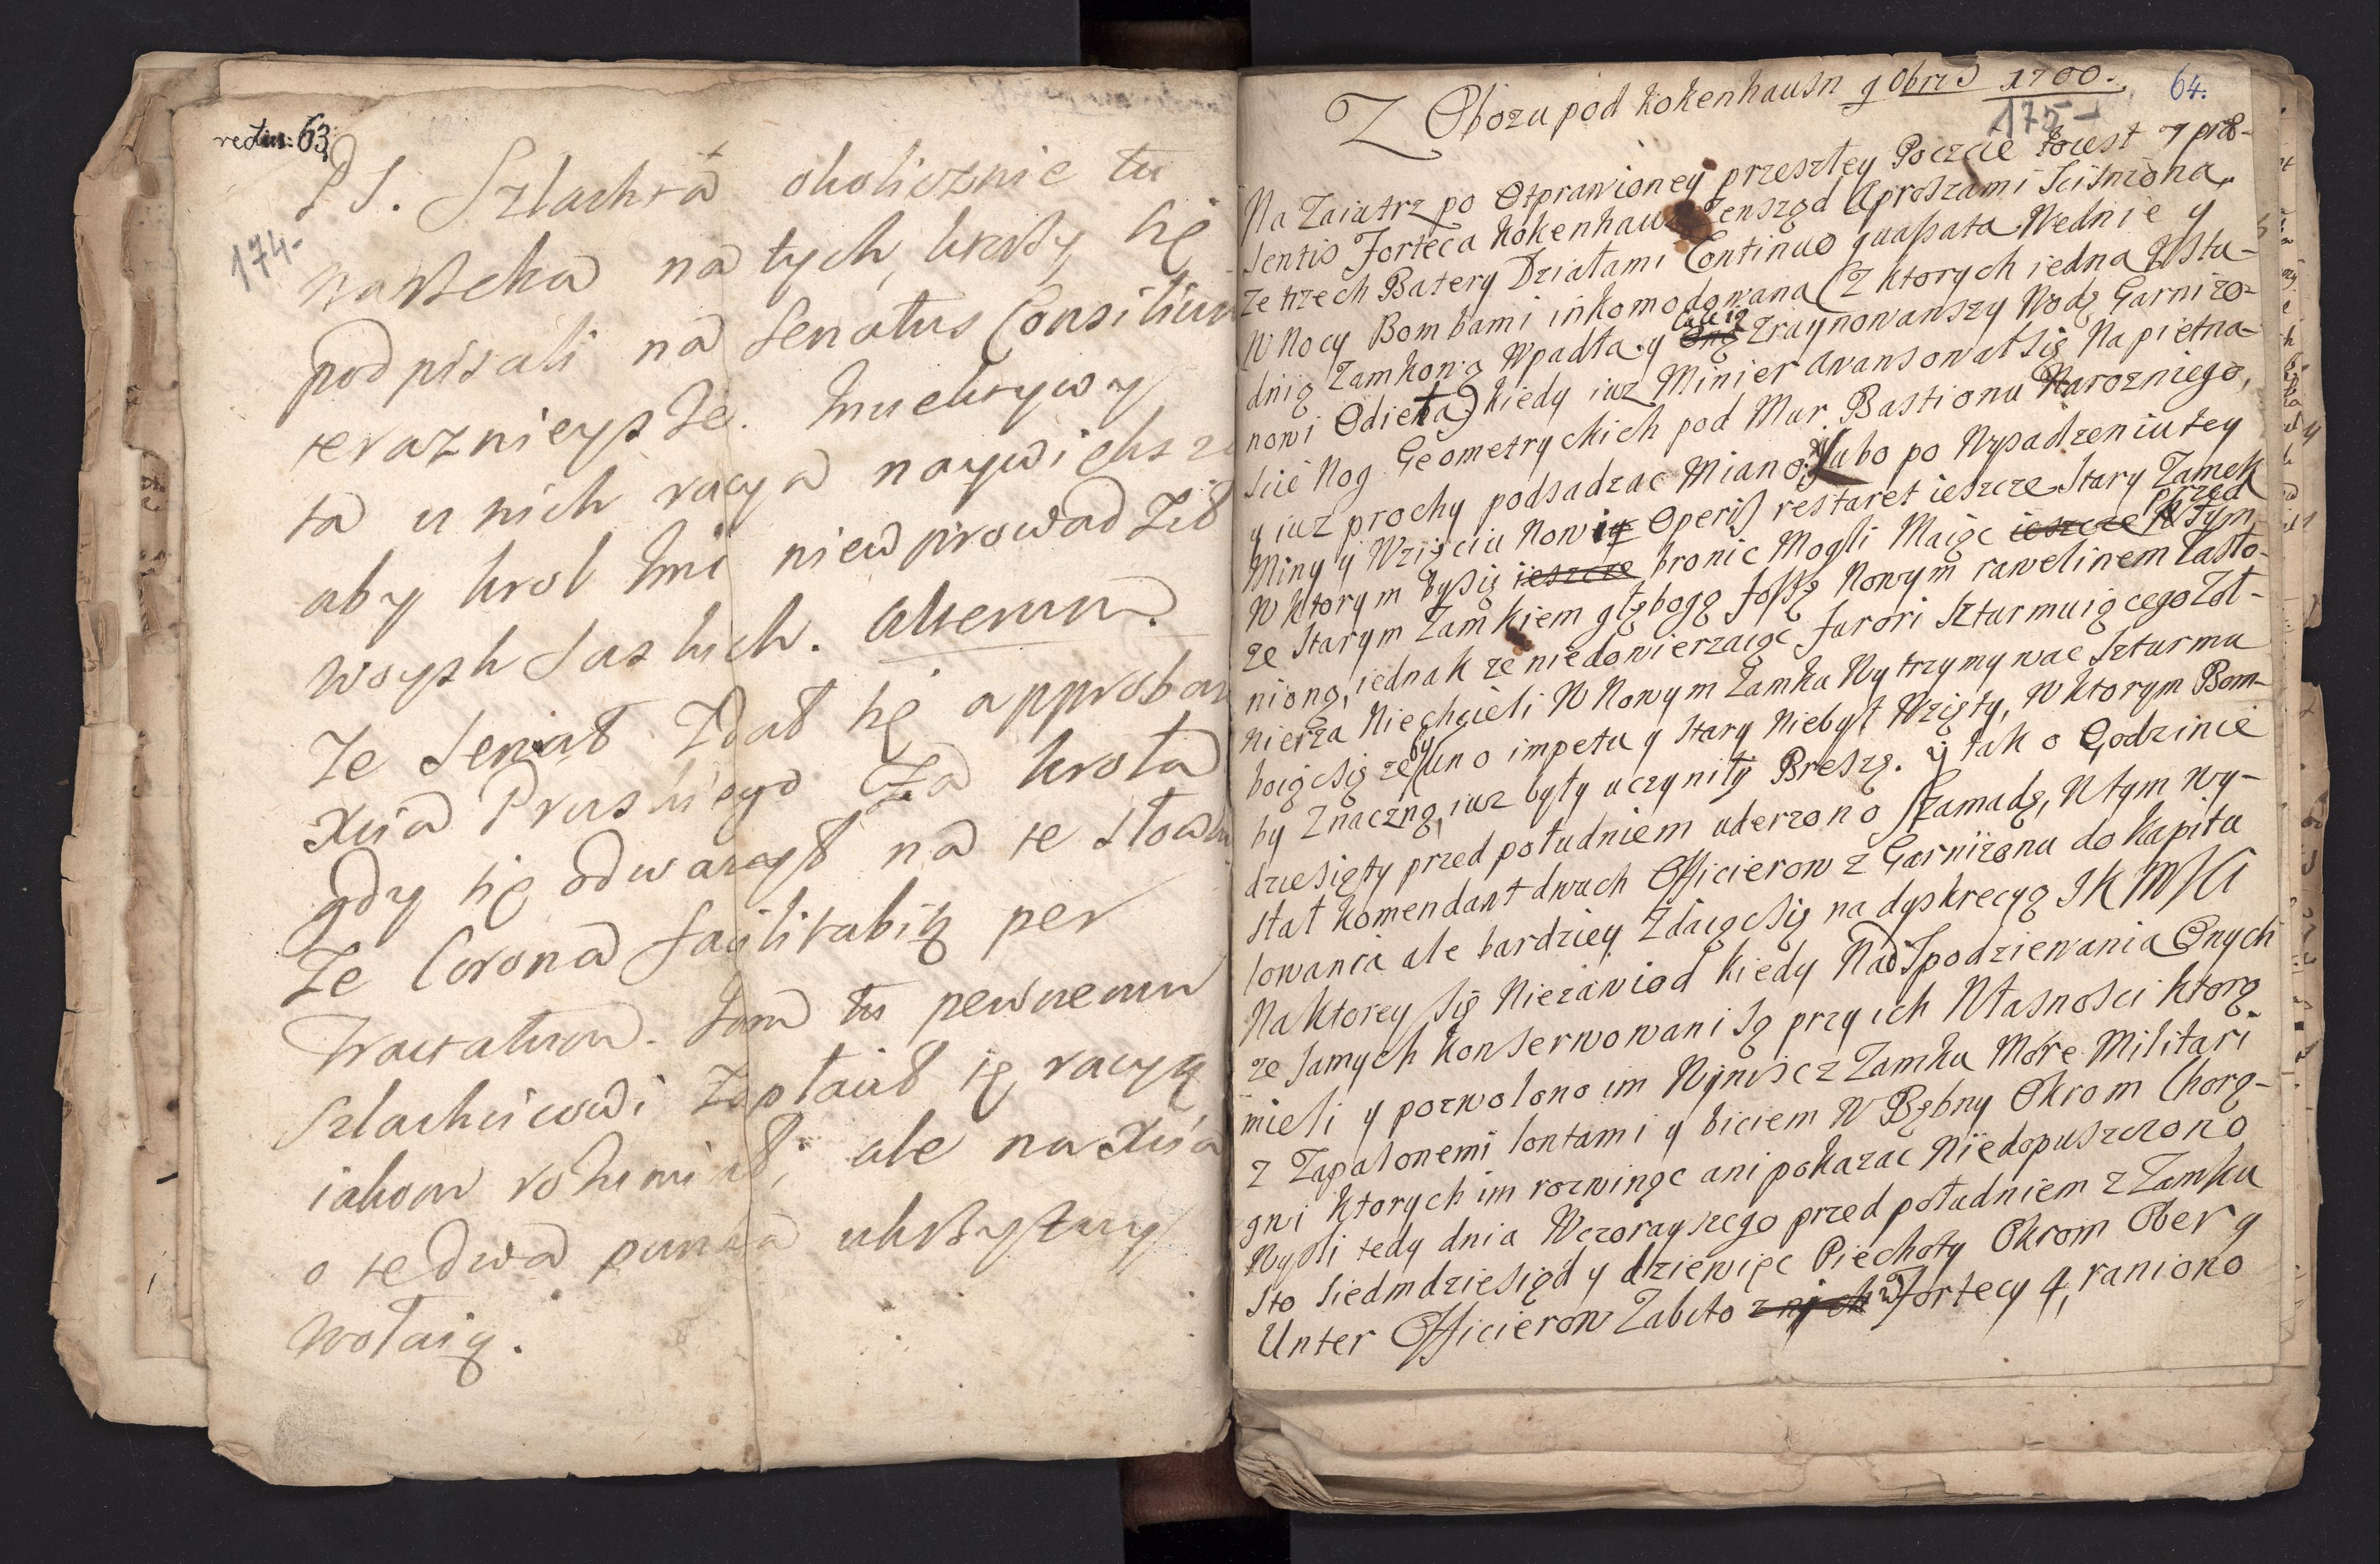 rectius: 63.
174-
PS. Szlachta okolicznie tu
warscka na tych, ktorzy się
podpisali na Senatus Consilium
teraznieysze.
ta u nich racya naywieksza
aby krol Imć niewprowadził
woysk Saskich. Alterum.
Ze Senat zdał się approbow
Xcia Pruskiego za krola
gdy się odwazył na te słowa
Ze Corona facilitabit per
Tractatum. Jam tu pewnemu
Szlachcicowi zapłacił tę racyą
iakom rozumiał, ale na Xcia
o te dwa puncta
wołaią.
64.
Z Obozu pod Kokenhausn 9 Obris 1700.
175-
Na Zaiutrz po Otprawioney przeszłey Poczcie to iest 7 prae-
sentis Forteca Kokenhauz zensząd Aproszami Sciśniona,
ze trzech Batery Działami Continuo quassata Wednie y
W Nocy Bombami inkomodowana (z ktorych iedna W Stu-
dnię Zamkową Wpadła y onę całą Zraynowawszy Wodę Garnizo-
nowi Odieta) kiedy iuz Minier Avansował Się Na pietna-
scie Nog Geometryckich pod Mur Bastionu Naroznego,
y iuz prochy podsadzac Miano. Lubo po Wysadzeniu tey
Miny y Wzięciu Nowią Operis restaret ieszcze Stary Zamek
W ktorym by się ieszcze bronic Mogli Maiąc ieszcze W tym przed
ze Starym Zamkiem głęboą fossę Nowym rawelinem zasło-
nioną, iednak ze niedowierzaiąc Furori Szturmuiącego Zoł-
nierza Niechcieli W Nowym Zamku Wytrzymywac Szturmu
boiąc się zeby uno impetu y Stary Niebył Wzięty, W ktorym Bom-
by Znaczną iuz były uczyniły Breszę. y tak o Godzinie
dziesięty przed południem uderzono Szamadę, W tym wy-
słał Komendant dwuch Officierow z Garnizonu do Kapitu
lowania ale bardziey Zdaiąc się na dyskrecyą JKMSCi
Na ktorey Się Niezawiod kiedy Nad Spodziewania Onych
ze Samych konserwowani Są przy ich Własnosci ktorą
mieli y pozwolono im Wyniść z Zamku More Militari
z Zapalonemi lontami y biciem W Bębny Okrom Chorą-
gwi ktorych im rozwinąc ani pokazac Niedopuszczono
Wyszli tedy dnia Wczorayszego przed południem z Zamku
Sto Siedmdziesiąd y dziewięc Piechoty Okrom Ober y
Unter Officierow Zabito z nich w Fortecy 4, raniono